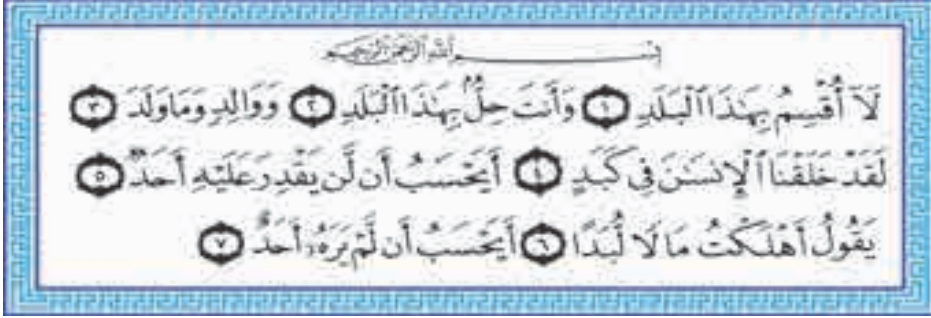 بِسْمِ اللَّهِ الرَّحْمَٰنِ الرَّحِيمِ
لَآ أُقْسِمُ بِهَٰذَا ٱلْبَلَدِ ١ وَأَنتَ حِلٌّۢ بِهَٰذَا ٱلْبَلَدِ ٢ وَوَالِدٍ وَمَا وَلَدَ ٣
لَقَدْ خَلَقْنَا ٱلْإِنسَٰنَ فِى كَبَدٍ ٤ أَيَحْسَبُ أَن لَّن يَقْدِرَ عَلَيْهِ أَحَدٌ ٥
يَقُولُ أَهْلَكْتُ مَالًا لُّبَدًا ٦ أَيَحْسَبُ أَن لَّمْ يَرَهُۥٓ أَحَدٌ ٧